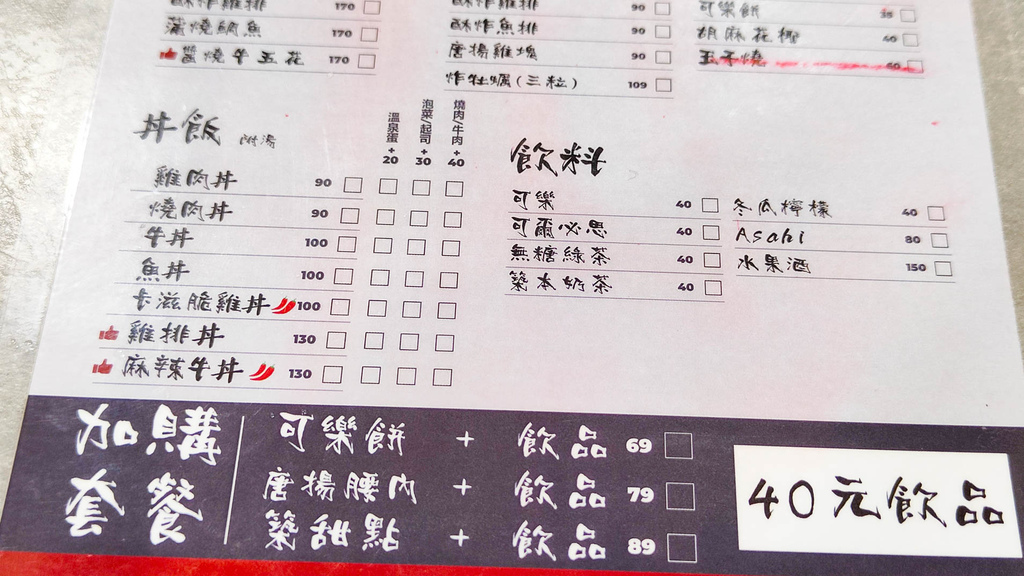 酥炸雞排 90
可樂餅 35
蒲燒鯛魚 170
酥炸魚排 90
胡麻花椰 40
醬燒牛五花 170
唐揚雞塊 90
玉子燒 60
炸牡蠣(三粒) 109
丼飯 附湯
溫泉蛋+20
泡菜/起司+30
燒肉/牛肉+40
雞肉丼 90
燒肉丼 90
牛丼 100
魚丼 100
卡滋脆雞丼 100
雞排丼 130
麻辣牛丼 130
飲料
可樂 40
可爾必思 40
無糖綠茶 40
築本奶茶 40
冬瓜檸檬 40
Asahi 80
水果酒 150
加購套餐
可樂餅 + 飲品 69
唐揚腰肉 + 飲品 79
築甜點 + 飲品 89
40元飲品